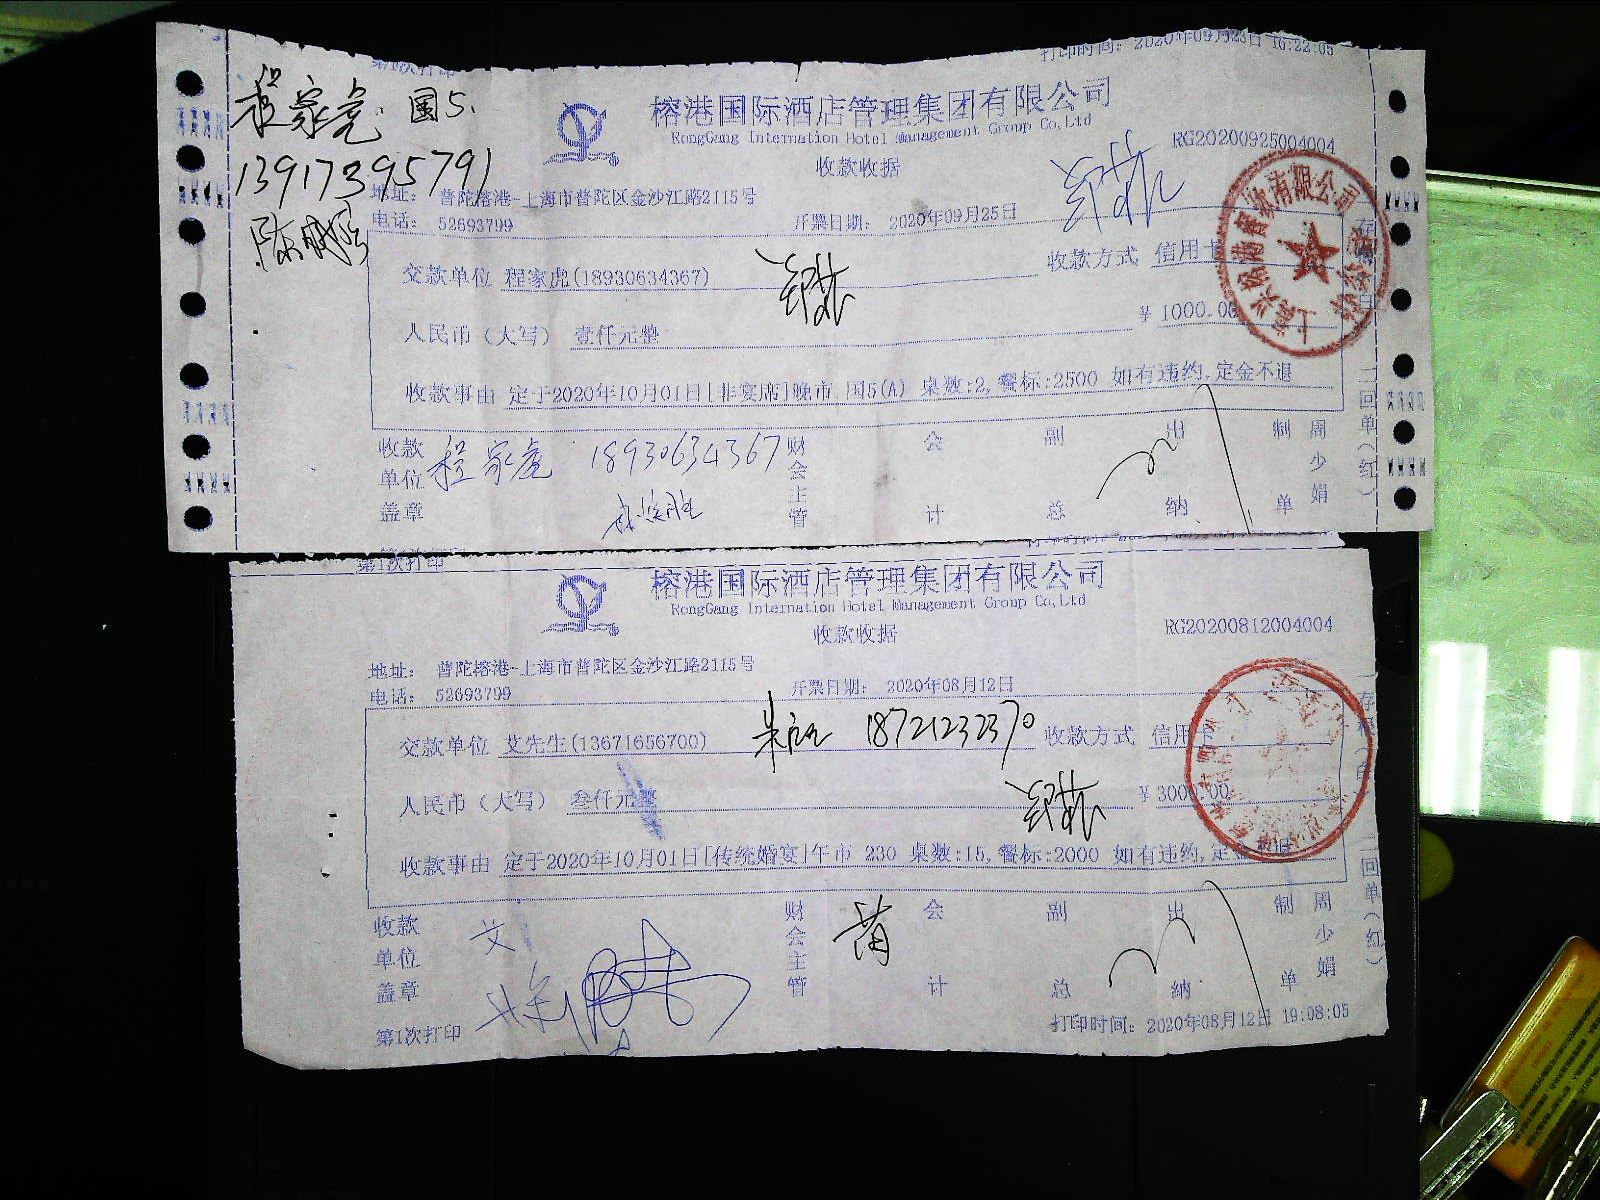 打印时间: 2020年09月23日 16:22:05
程家虎 国5.
榕港国际酒店管理集团有限公司
RongGang Internation Hotel Management Group Co,Ltd
RG20200925004004
收款收据
13917395791
地址: 普陀榕港-上海市普陀区金沙江路2115号
电话: 52693799
开票日期: 2020年09月25日
交款单位 程家虎(18930634367)
收款方式 信用卡
人民币(大写) 壹仟元整
¥ 1000.00
收款事由 定于2020年10月01日[非宴席]晚市 国5(A) 桌数:2,餐标:2500 如有违约,定金不退
二回单(红)
收款单位盖章 程家虎 18930634367
财会主管
会计
副总
出纳
制单
周少娟
第1次打印
榕港国际酒店管理集团有限公司
RongGang Internation Hotel Management Group Co,Ltd
收款收据
RG20200812004004
地址: 普陀榕港-上海市普陀区金沙江路2115号
电话: 52693799
开票日期: 2020年08月12日
交款单位 艾先生(13671656700)
18721232370
收款方式 信用
人民币(大写) 叁仟元整
¥ 3000.00
收款事由 定于2020年10月01日[传统婚宴]午市 230 桌数:15,餐标:2000 如有违约,定金
二回单(红)
收款单位盖章
财会主管
会计
副总
出纳
制单
周少娟
第1次打印
打印时间: 2020年08月12日 19:08:05